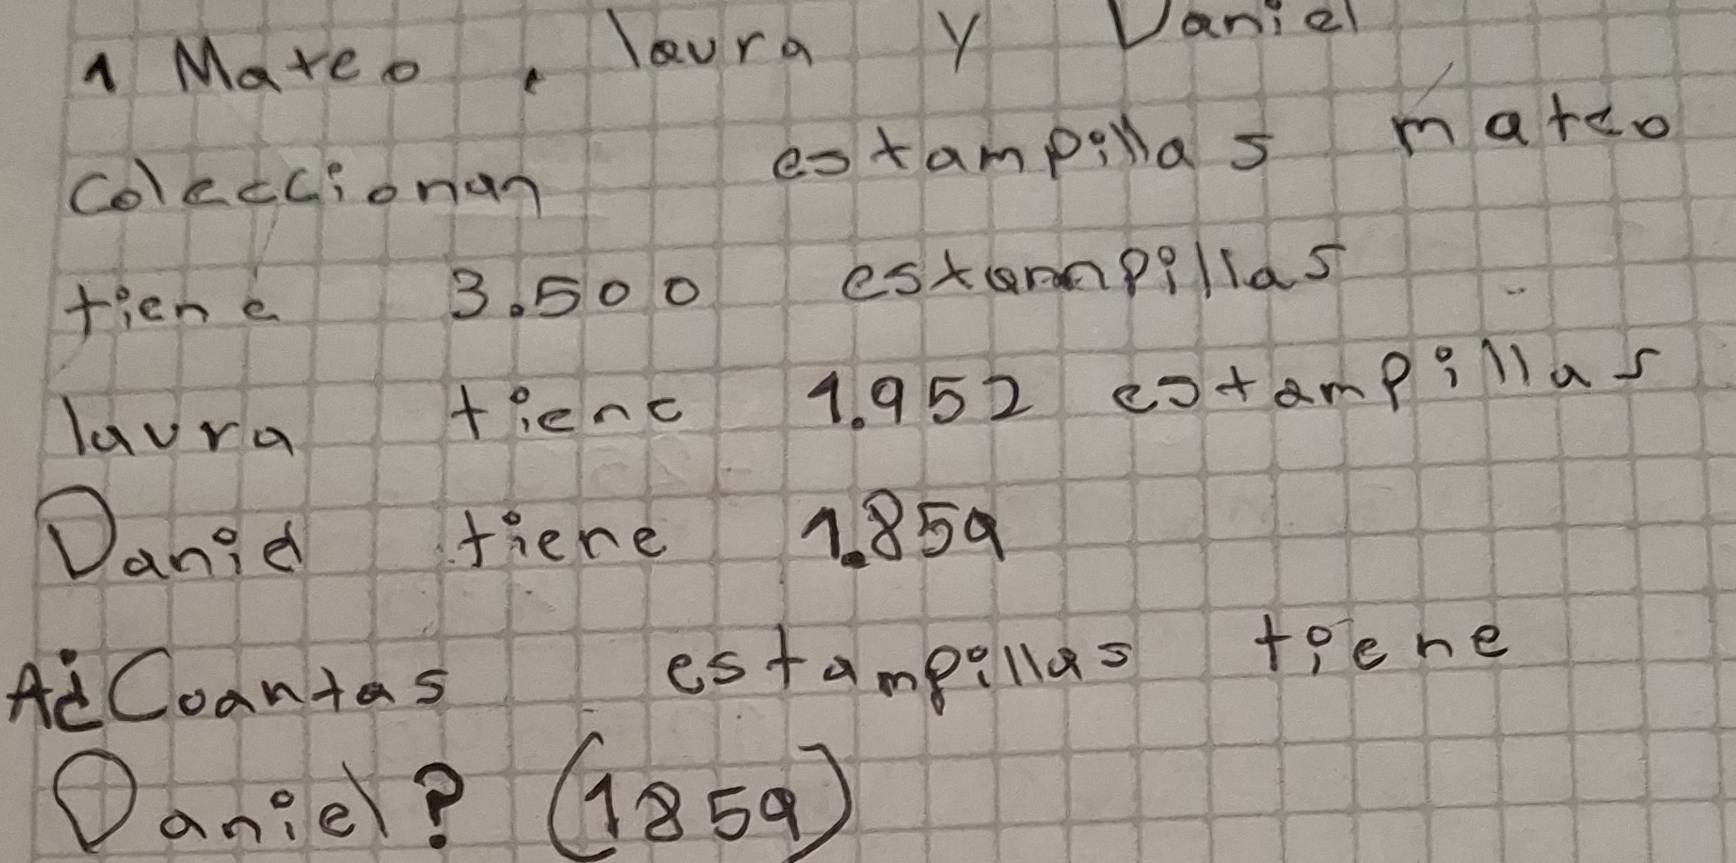 1 Mateo, laura y Daniel
coleccionan estampillas mateo
tiene 3.500 estampillas
laura tiene 1.952 estampillas
Daniel tiene 1.859
A¿Coantas estampillas tiene
Daniel? (1859)